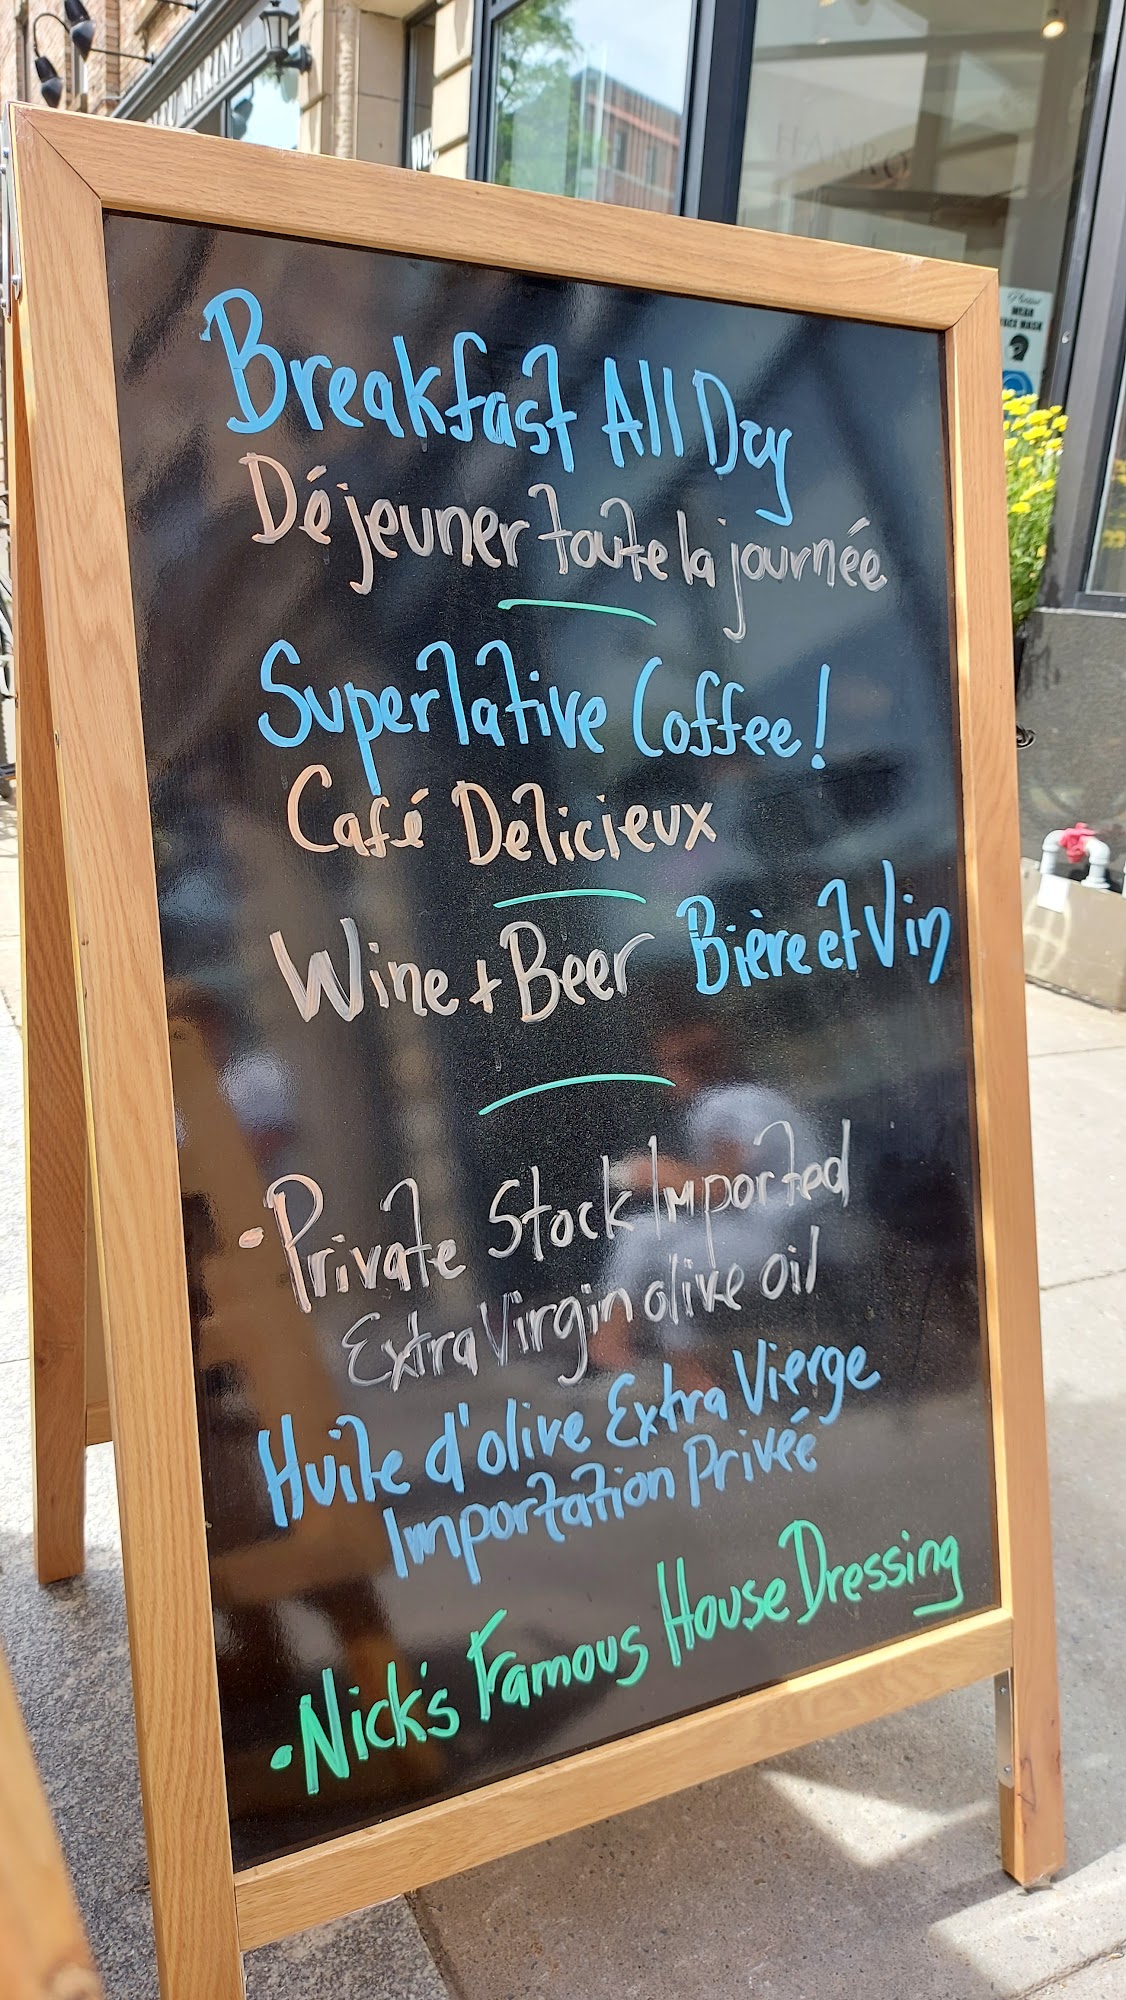 Breakfast All Day
Déjeuner toute la journée
Superlative Coffee!
Café Delicieux
Wine + Beer Bière et Vin
• Private Stock Imported
Extra Virgin olive oil
Huile d'olive Extra Vierge
Importation Privéé
• Nick's Famous House Dressing
HANRO
MARINE
WEAR
FACE MASK